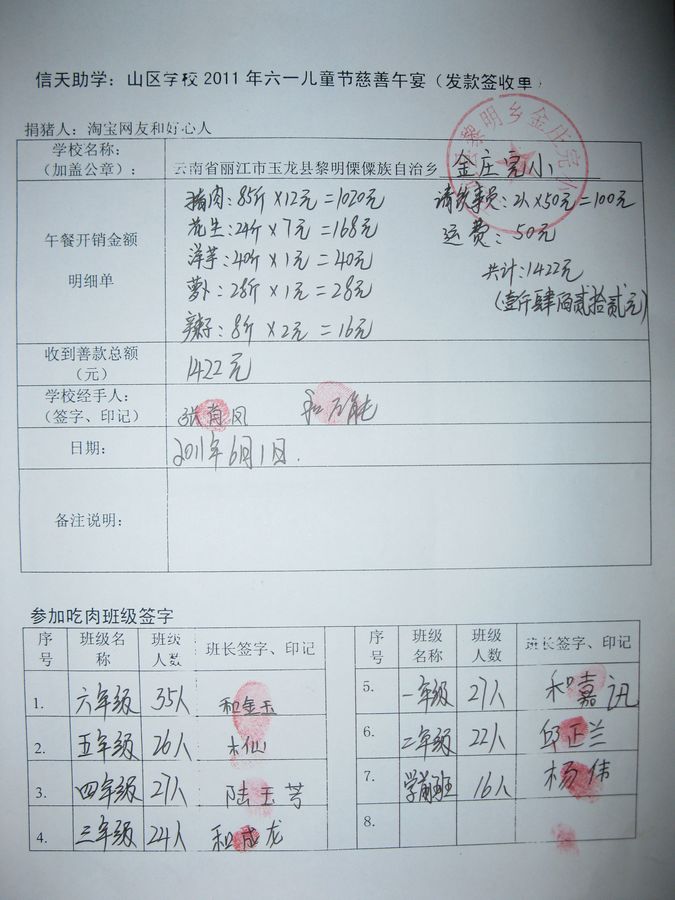 信天助学：山区学校 2011 年六一儿童节慈善午宴（发款签收单
捐猪人：淘宝网友和好心人
学校名称：
（加盖公章）：
云南省丽江市玉龙县黎明傈僳族自治乡 金庄完小
黎明乡金庄完小
午餐开销金额
明细单
猪肉：85斤×12元=1020元
花生：24斤×7元=168元
洋芋：40斤×1元=40元
萝卜：28斤×1元=28元
辣子：8斤×2元=16元
请炊事员：2人×50元=100元
运费：50元
共计：1422元
（壹仟肆佰贰拾贰元）
收到善款总额
（元）
1422元
学校经手人：
（签字、印记）
张肖凤
日期：
2011年6月1日.
备注说明：
参加吃肉班级签字
序号 班级名称 班级人数 班长签字、印记
1. 六年级 35人 和金玉
2. 五年级 26人 木仙
3. 四年级 27人 陆玉芩
4. 三年级 24人 和成龙
序号 班级名称 班级人数 班长签字、印记
5. 一年级 27人 和嘉讯
6. 二年级 22人 邱正兰
7. 学前班 16人 杨伟
8.